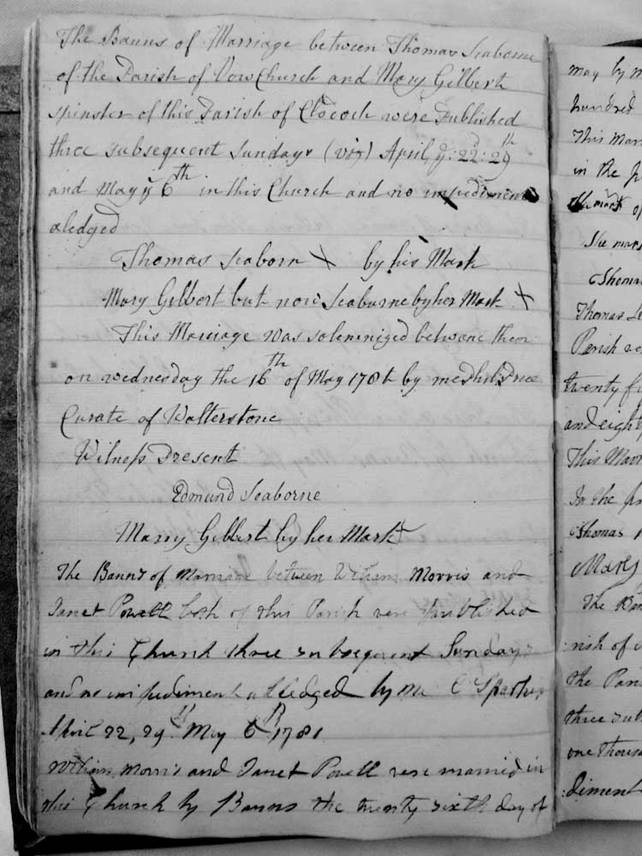 The Banns of Marriage between Thomas Seaborne
of the Parish of VowChurch and Mary Gilbert
spinster of this Parish of Clodock were Published
three subsequent Sundays (viz) April y: 22: 29th
and May y 6th in this Church and no impediment
aledged
Thomas Seaborn X by his Mark
Mary Gilbert but now Seaburne by her Mark X
This Marriage was solemnized betwane them
on wednesday the 16th of May 1781 by me
Curate of Walterstone
Witness Present
Edmund Seaborne
Marry Gilbert by her Mark X
The Banns of Marriage between William Morris and
Janet Powell both of this Parish were Published
in this Church three subsequent Sundays
and no impediment alledged by me C Sparkes
April 22, 29th May 6th 1781
William Morris and Janet Powell were married in
this Church by Banns the twenty sixth day of
may by m
hundred
This Marr
in the p
mark of
She mark
Thomas
Parish
twenty f
and eight
This Marr
In the
Thomas
Mary
The Ban
rish of
the Par
three sub
one thous
diment